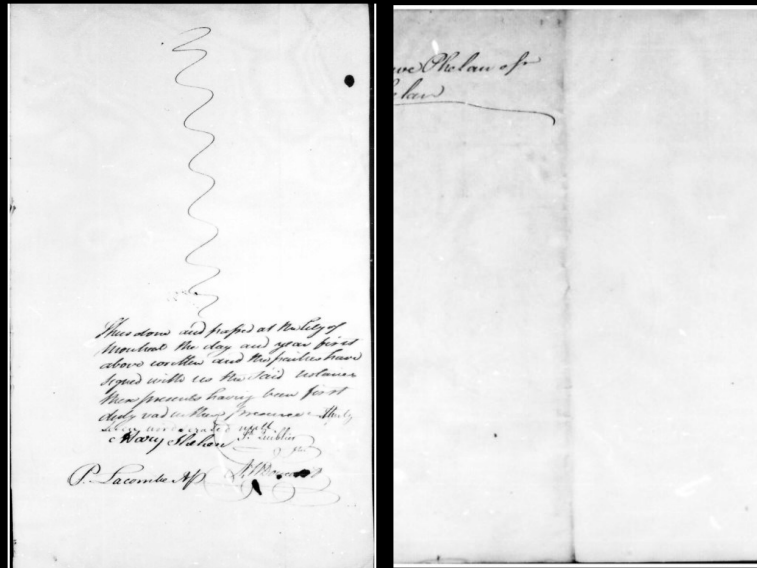 Thus done and passed at the City of
Montreal the day and year first
above written and the parties have
signed with us the said Notaries
these presents having been first
duly read in their presence
Mary Phelan
P. Lacombe NP
Phelan of